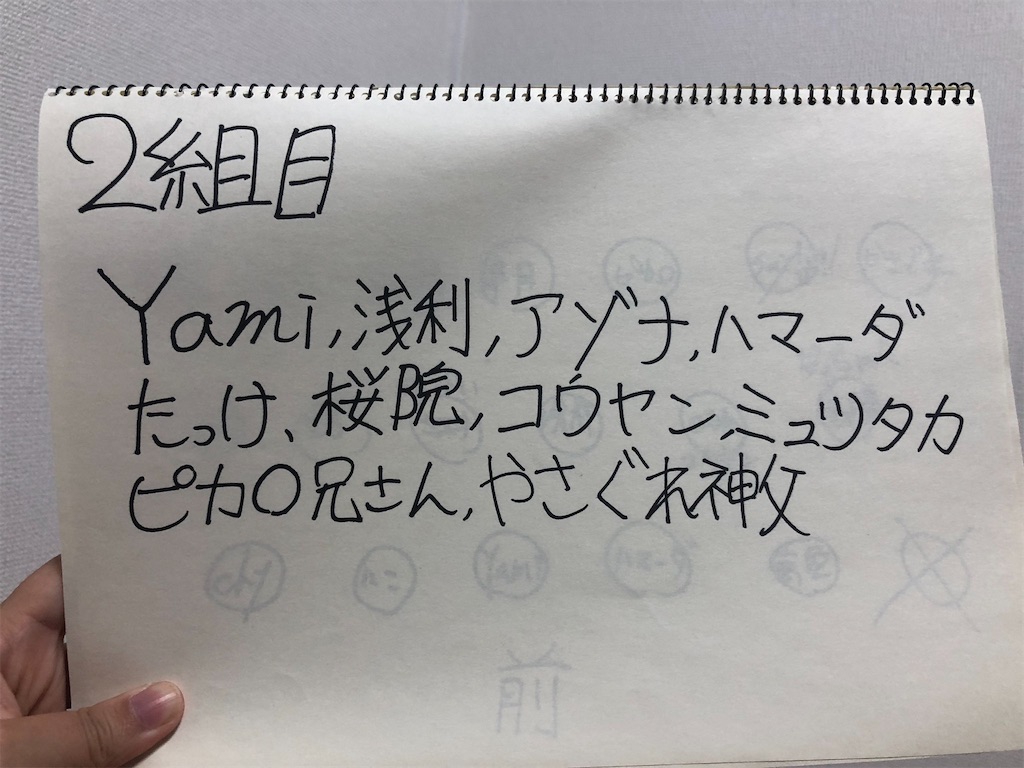 2組目
Yami,浅利,アゾナ,ハマーダ
たっけ、桜院,コウヤン,ミュツタカ
ピカ〇兄さん,やさぐれ神父
前